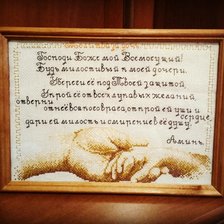 Господи Боже мой Всемогущий!
Будь милостивый к моей дочери.
Береги её под Твоей защитой,
Укрой её от всех лукавых желаний,
отверни
от неё всякого врага, открой ей уши и
сердце,
даруй ей милость и смирение в её душу.
Аминь.